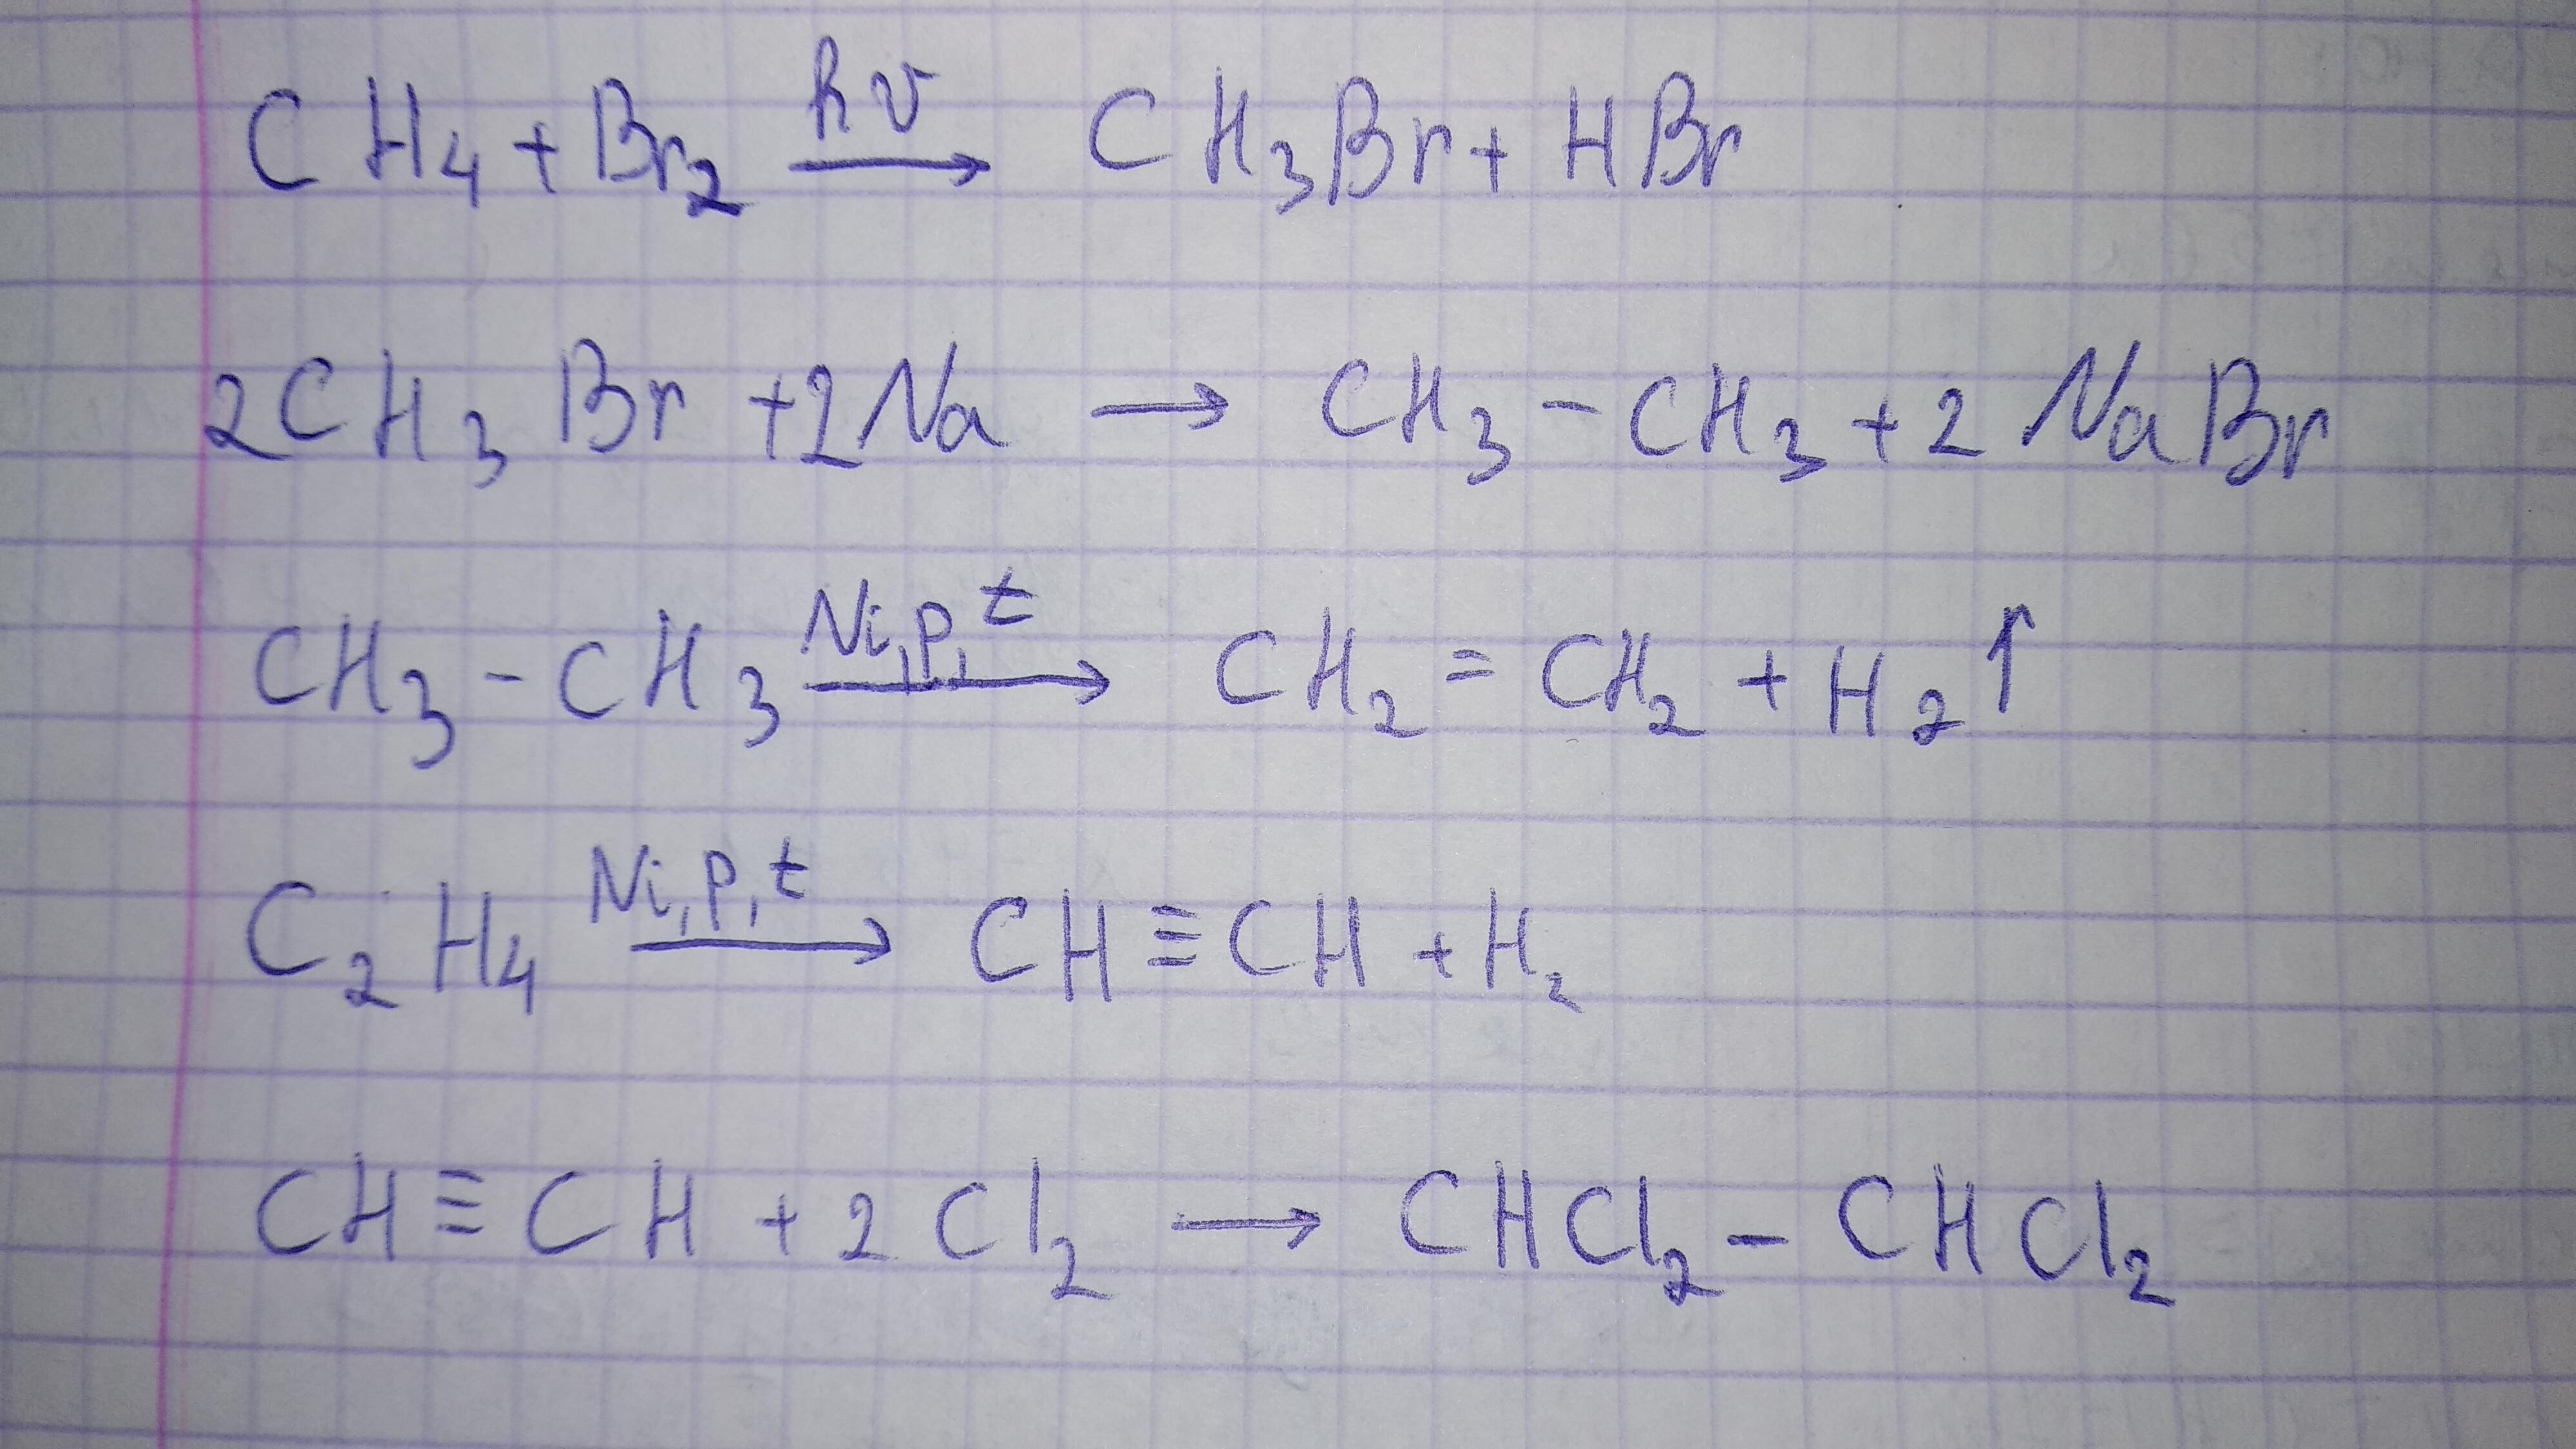 CH₄ + Br₂ hν → CH₃Br + HBr
2CH₃Br + 2Na → CH₃ - CH₃ + 2NaBr
CH₃ - CH₃ Ni, p, t → CH₂ = CH₂ + H₂↑
C₂H₄ Ni, p, t → CH ≡ CH + H₂
CH ≡ CH + 2Cl₂ → CHCl₂ - CHCl₂